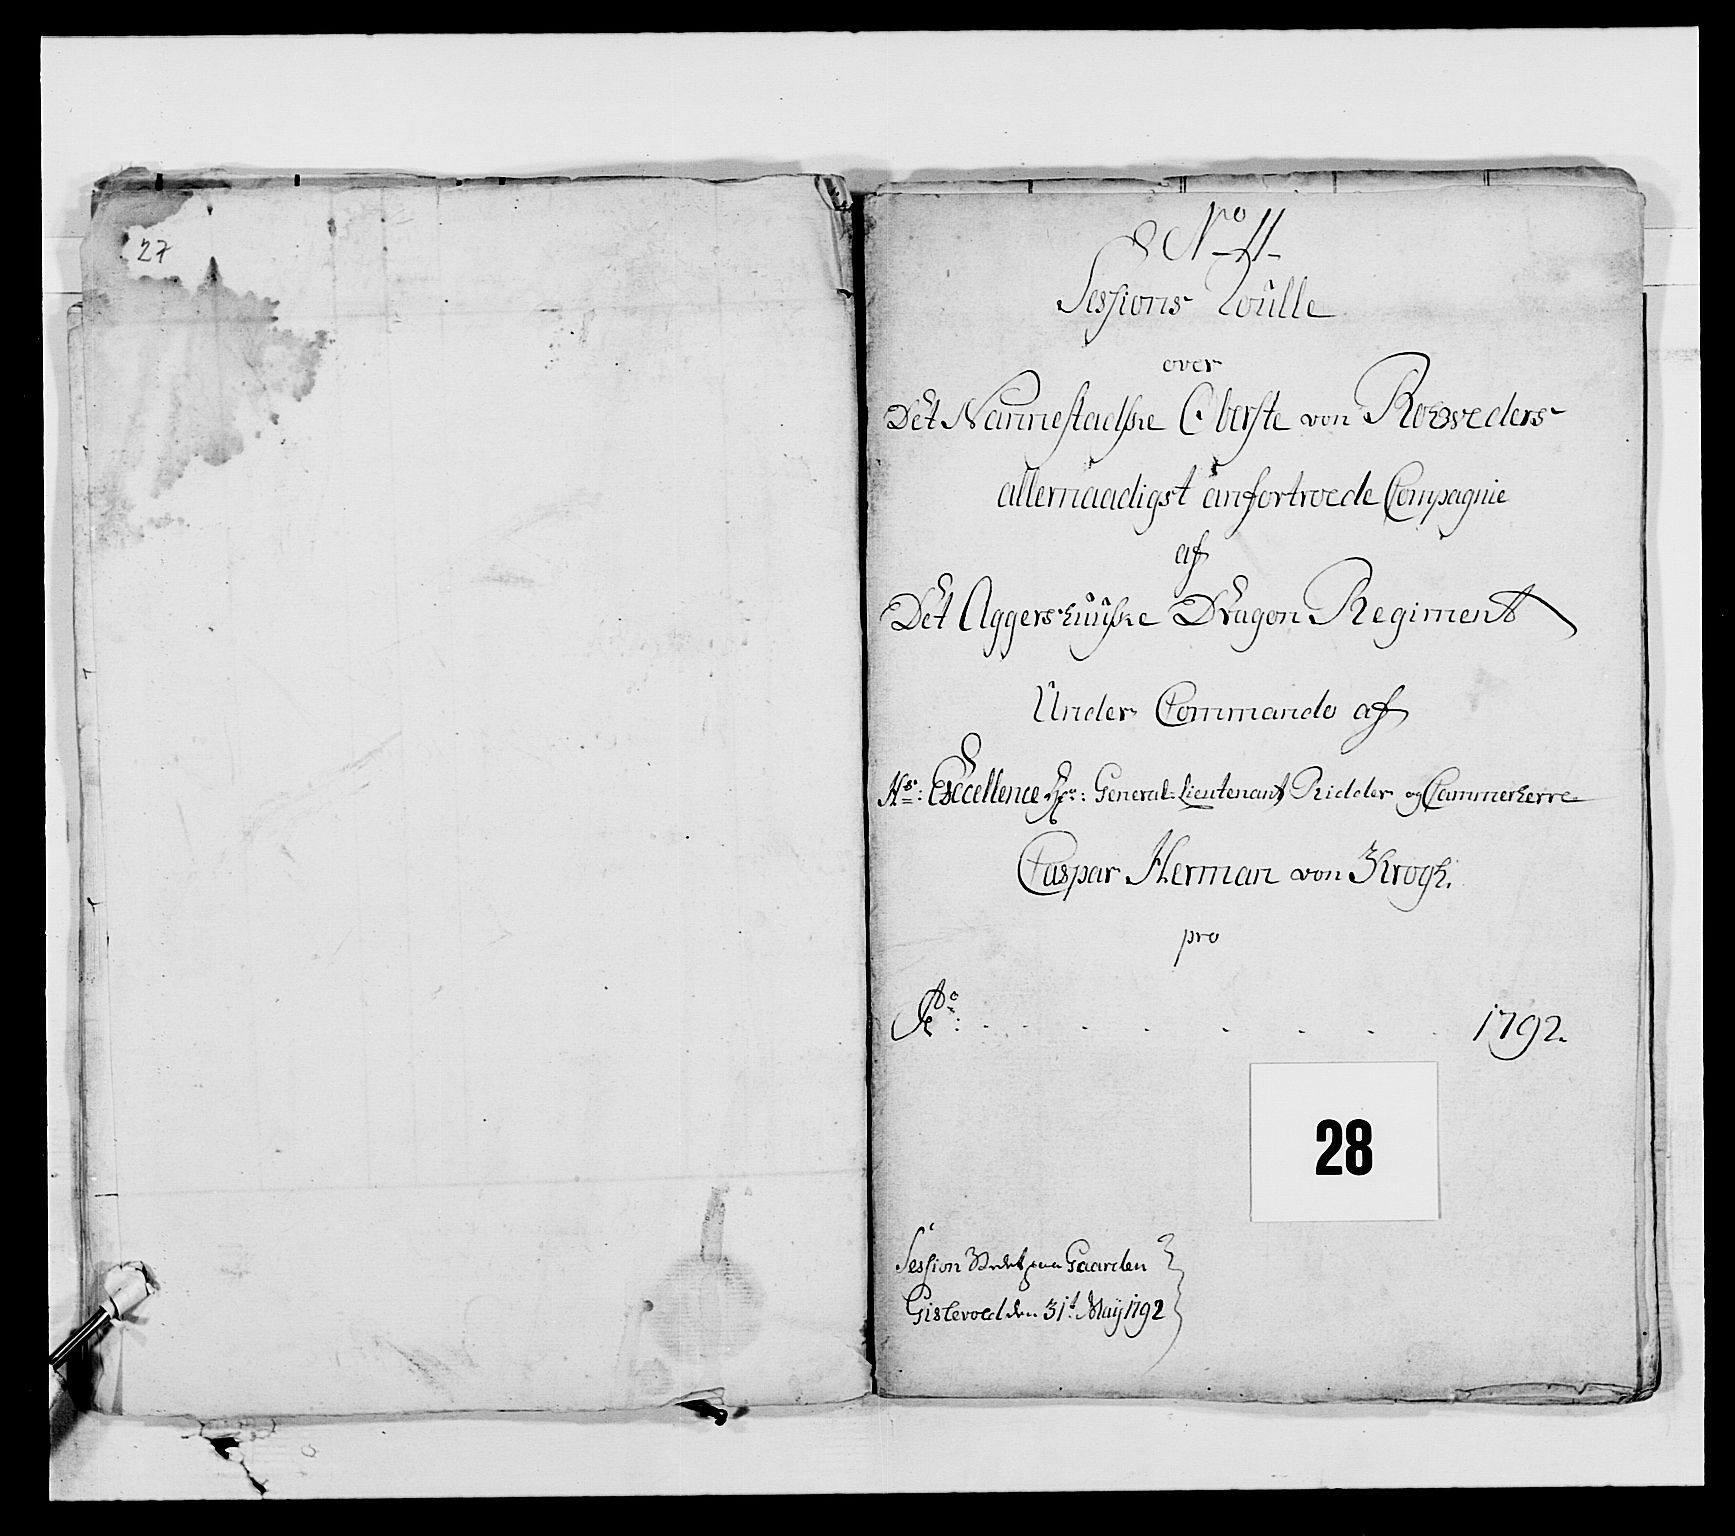 27
No 11
Sessions Roulle
over
Det Nannestadske Oberste von Roepeders
allernaadigst anfortroede Compagnie
af
Det Aggershuuske Dragon Regiment
Under Commando af
Hs: Excellence Hr: General-Lieutenant Ridder og Cammerherre
Caspar Herman von Krogh.
pro
Ao: . . . . . . . . 1792.
28
Session Holdet paa Gaarden
Gislevold den 31t May 1792